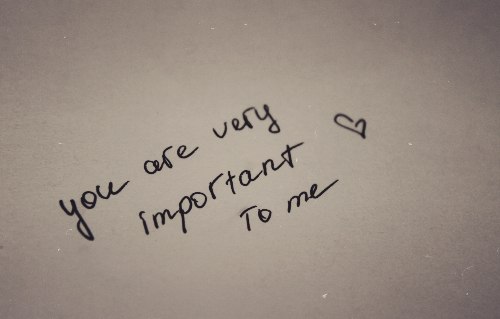 you are very
important
To me